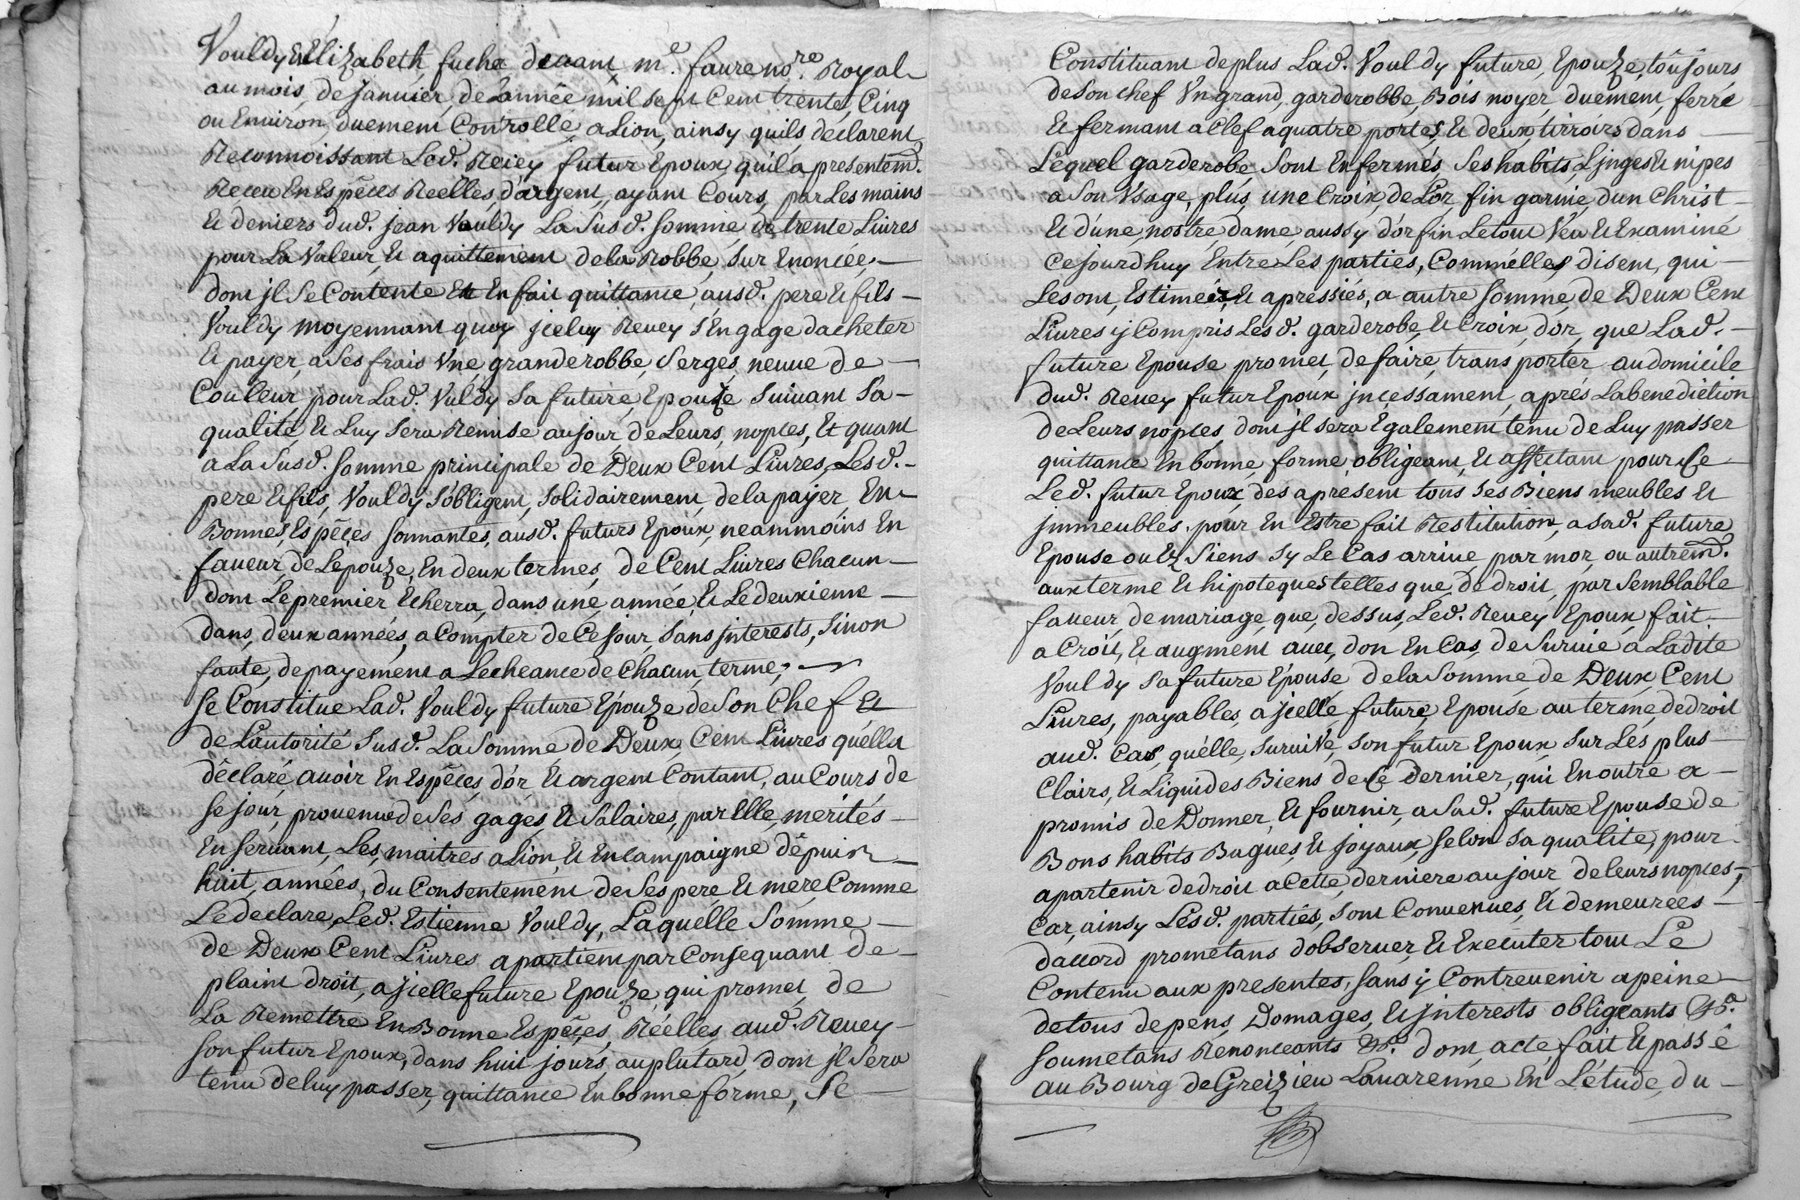 Vouldy & Elizabeth fuche devant m.e faure no.re Royal
au mois, de janvier, de L'année mil sept Cent trente, Cinq
ou Environ, duement Controllé, a Lion, ainsy qu'ils, declarent
Reconnoissant Led. Revey futur Epoux, quil a presentem.t
Receu En Espéces Reélles, d'argent, ayant Cours, par Les mains
& deniers dud. jean Vouldy La Susd. Somme, de trente Livres
pour La Valeur, & aquittement de la Robbe, Sur Enoncée,
dont jl Se Contente Et En fait quittance, ausd. pere & fils
Vouldy moyennant quoy jceluy Revey S'Engage d'acheter
& payer, a Ses frais Vne grande robbe, Serges, neuve de
Couleur pour Lad. Vuldy Sa future, Epouze Suivant Sa
qualité, & Luy Sera Remise au jour de Leurs, nopces, Et quant
a La Susd. Somme principale de Deux Cent Livres, Lesd.
pere & fils, Vouldy S'obligent, Solidairement, de la payer En
Bonnes, Espéçes Sonnantes, ausd. futurs Epoux, neammoins En
faveur, de L'epouze, En deux termes, de Cent Livres Chacun
dont Le premier Echerra, dans une, année, & Le deuxieme
dans, deux années, a Compter de Ce Jour, Sans jnterests, Sinon
faute, de payement a L'echeance de Chacun, terme;
Se Constitue Lad. Vouldy future Epouze de Son Chef &
de L'autorité Susd. La Somme de Deux, Cent Livres quélla
déclaré, avoir En Espéces, d'or & argent Contant, au Cours, de
Se jour, provenue de Ses gages & Salaires, par Elle, merités
En Servant, Les, maitres a Lion & En Campaigne dépuis
huit, années, du Consentement de Ses pere, & mere, Comme
Le declare, Led. Estienne Vouldy, Laquelle Somme
de Deux Cent Livres apartient par Consequant de
plaint droit, a jcelle future Epouze qui promet, de
La Remettre En Bonne Espéçes, Réelles, aud. Revey
Son futur Epoux, dans huit jours, au plutard, dont jl Sera
tenu de luy passer, quittance En bonne forme, Se
Constituant de plus Lad. Vouldy future, Epouze, toûjours
de Son Chef Vn grand, garderobbe, Bois noyer, duement, ferré
& fermant a Clef a quatre portes & deux, tirroirs dans
Léquel garderobe, Sont Enfermés, Ses habits, Linges & nipes
a Son Vsage, plus, une Croix, de L'or fin garnie, d'un Christ
& d'une, nostre dame, aussy d'or fin Le tout Veu & Examiné
Ce jourd'huy Entre Les parties, Commelles disent, qui
Les ont, Estimées, & apressiés, a autre Somme, de Deux Cent
Livres y Compris Lesd. garderobe, & Croix, d'or, que Lad.
future Epouse promet, de faire, transporter au domicile
dud. Revey futur Epoux jncessament, aprés La benediction
de Leurs nopces, dont jl sera Egalement tenu de Luy passer
quittance En bonne, forme, obligeant, & affectant pour Ce
Led. futur Epoux, des apresent tous Ses Biens meubles &
jmmeubles, pour En Estre fait Restitution, a Sad. future
Epouse ou Ez Siens Sy Le Cas arrive, par mor, ou autrem.t
aux terme & hipoteques telles que, de droit, par Semblable
faveur, de mariage, que, dessus, Led. Revey Epoux, fait
a Croit, & augment avec, don En Cas, de Survie a Ladite
Vouldy Sa future Epouse de la Somme de Deux Cent
Livres, payables, a jcelle future, Epouse au terme, de droit
aud. Cas, quélle, Survive, Son futur Epoux Sur Les plus
Clairs, & Liquides Biens de Ce dernier, qui En outre a
promis de Donner, & fournir, a Sad. future Epouse de
Bons habits Bagues, & joyaux, Selon Sa qualité, pour
apartenir de droit a Cette, derniere au jour de leurs nopces,
Car, ainsy Lesd. parties, Sont Convenues, & demeurées
d'accord prometans d'observer, & Executer tout Le
Contenu aux presentes, Sans y Contrevenir a peine
de tous depens, Domages, & jnterests obligeants &c.a
Soumetans Renonceants &c.a dont, acte, fait & passé
au Bourg de Greizieu Lavarenne En L'étude, du